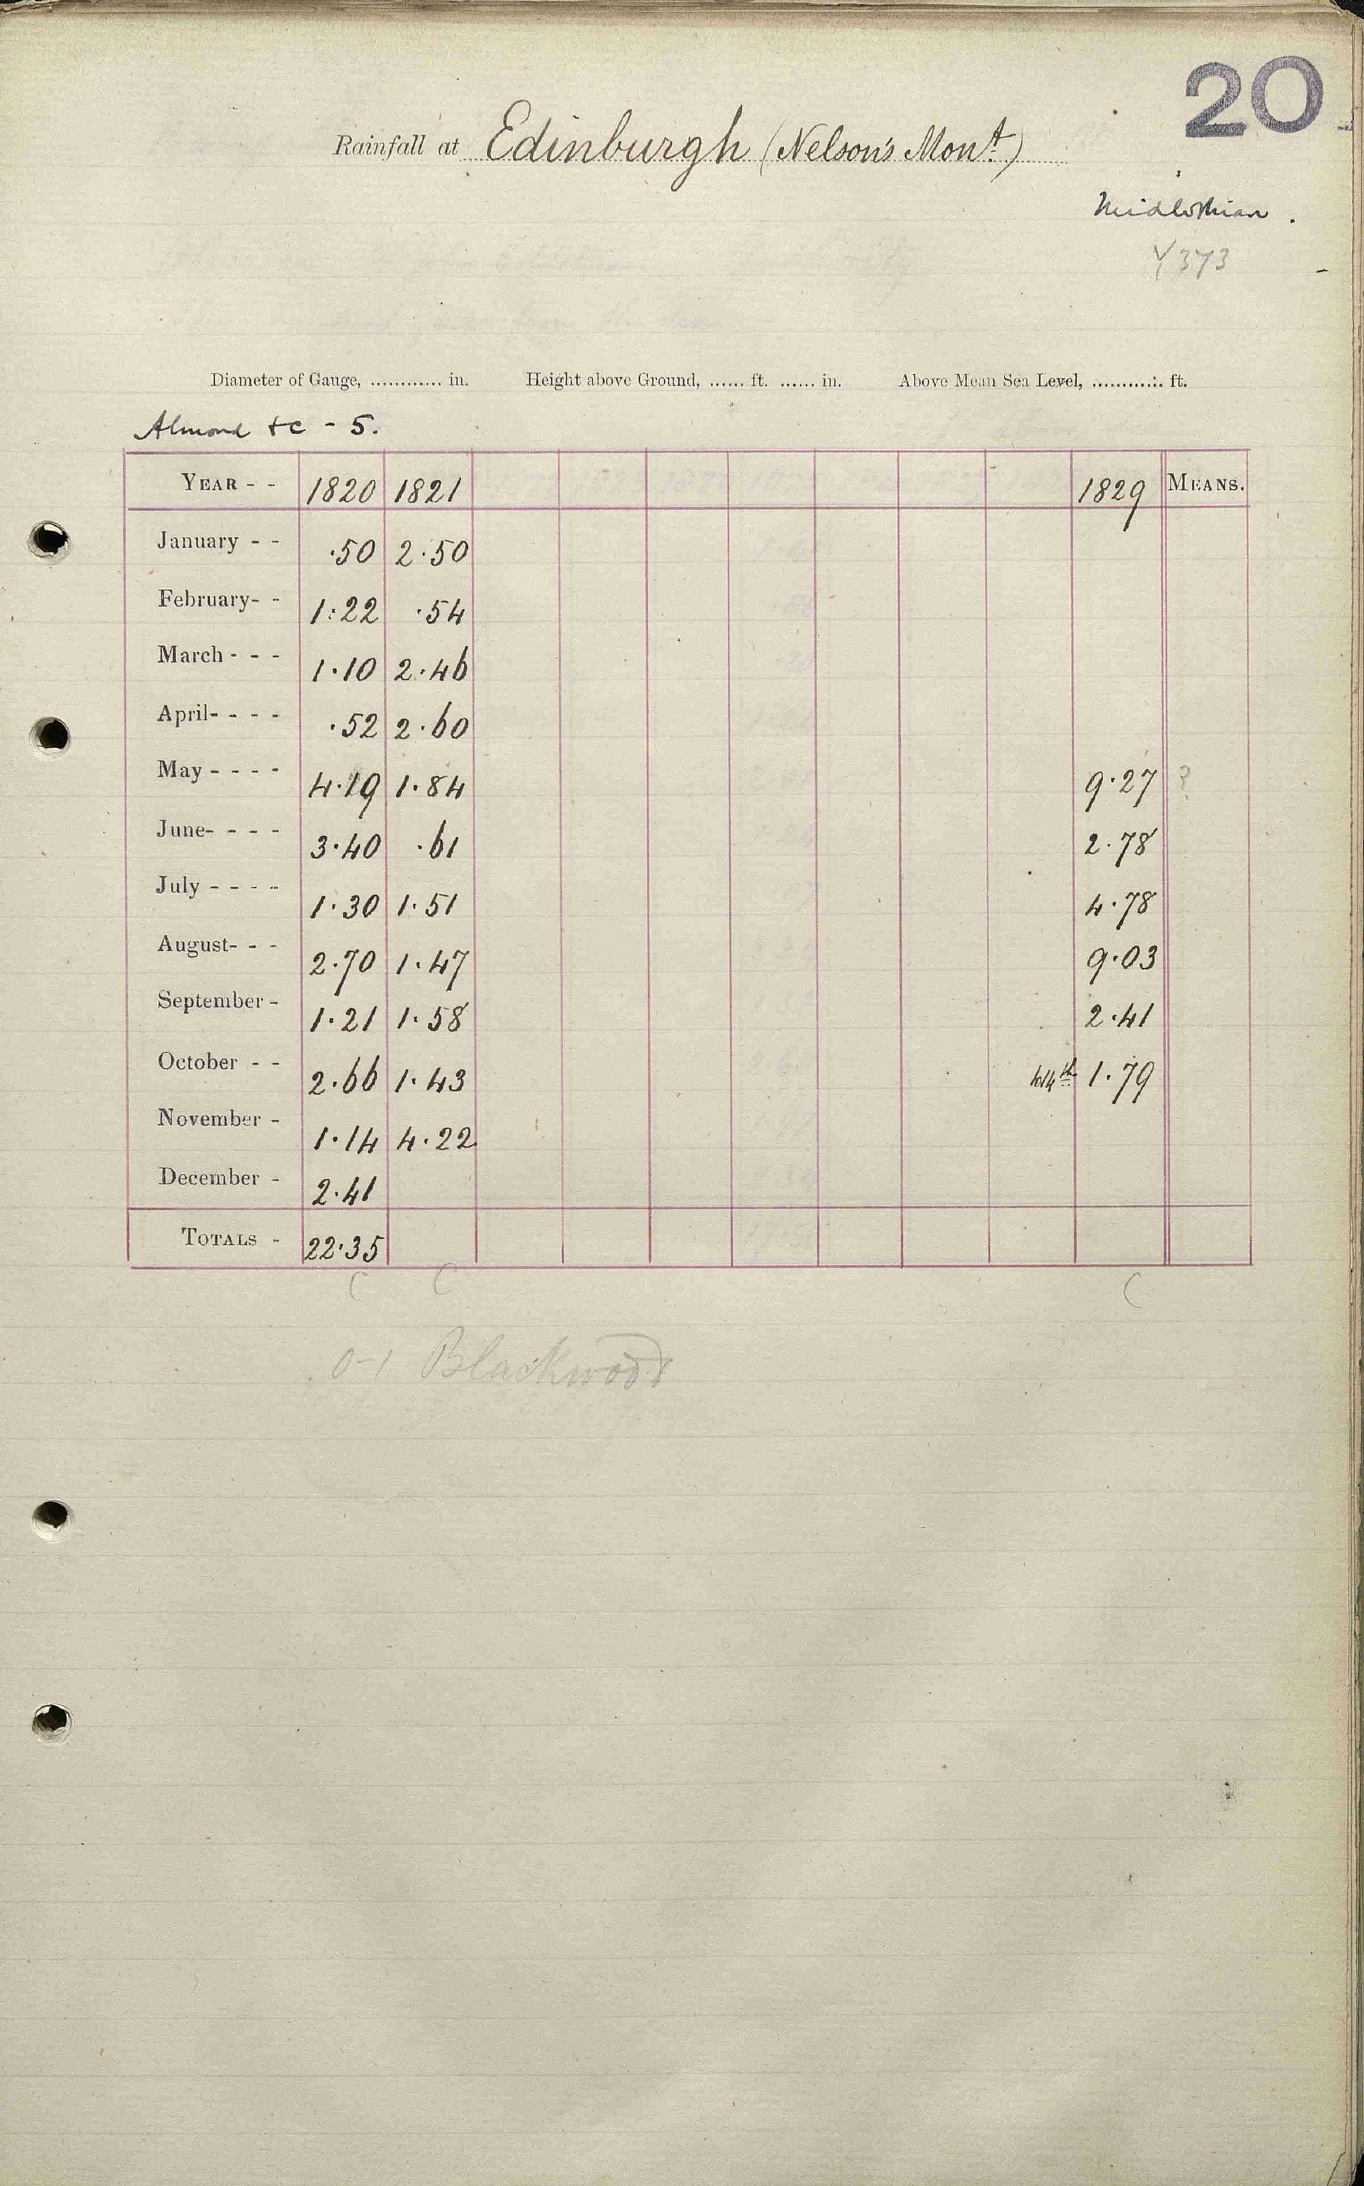 20
Rainfall at Edinburgh (Nelson's Mont.)
Midlothian.
Y373
Diameter of Gauge, ............ in. Height above Ground, ...... ft. ...... in. Above Mean Sea Level, ............ ft.
Almond &c - 5.
YEAR - - 1820 1821 1829 MEANS.
January - - .50 2.50
February- - 1.22 .54
March - - - 1.10 2.46
April- - - - .52 2.60
May - - - - 4.19 1.84 9.27 ?
June- - - - 3.40 .61 2.78
July - - - - 1.30 1.51 4.78
August- - - 2.70 1.47 9.03
September - 1.21 1.58 2.41
October - - 2.66 1.43 to 14th 1.79
November - 1.14 4.22
December - 2.41
TOTALS - 22.35
C C C
0-1 Blackwood